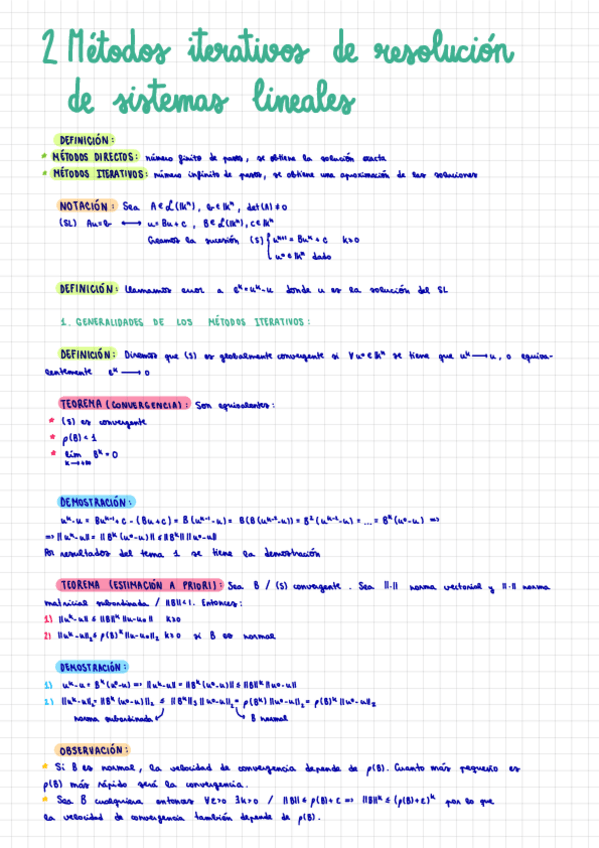 2 Métodos iterativos de resolución
de sistemas lineales
DEFINICIÓN:
* MÉTODOS DIRECTOS: número finito de pasos, se obtiene la solución exacta
* MÉTODOS ITERATIVOS: número infinito de pasos, se obtiene una aproximación de las soluciones
NOTACIÓN: Sea A ∈ L(ℝⁿ), b ∈ ℝⁿ, det(A) ≠ 0
(SL) Au = b ⟷ u = Bu + c, B ∈ L(ℝⁿ), c ∈ ℝⁿ
Creamos la sucesión (S) { uᵏ⁺¹ = Buᵏ + c k≥0
u⁰ ∈ ℝⁿ dado
DEFINICIÓN: Llamamos error a eᵏ = uᵏ - u donde u es la solución del SL
1. GENERALIDADES DE LOS MÉTODOS ITERATIVOS:
DEFINICIÓN: Diremos que (S) es globalmente convergente si ∀u⁰ ∈ ℝⁿ se tiene que uᵏ ⟶ u, o equiva-
lentemente eᵏ ⟶ 0
TEOREMA (CONVERGENCIA): Son equivalentes:
* (S) es convergente
* ρ(B) < 1
* lim Bᵏ = 0
k→+∞
DEMOSTRACIÓN:
uᵏ - u = Buᵏ⁻¹ + c - (Bu + c) = B(uᵏ⁻¹ - u) = B(B(uᵏ⁻² - u)) = B²(uᵏ⁻² - u) = ... = Bᵏ(u⁰ - u) =>
=> ||uᵏ - u|| = ||Bᵏ(u⁰ - u)|| ≤ ||Bᵏ|| ||u⁰ - u||
Por resultados del tema 1 se tiene la demostración
TEOREMA (ESTIMACIÓN A PRIORI): Sea B / (S) convergente. Sea ||·|| norma vectorial y ||·|| norma
matricial subordinada / ||B|| < 1. Entonces:
1) ||uᵏ - u|| ≤ ||B||ᵏ ||u - u₀|| k≥0
2) ||uᵏ - u||₂ ≤ ρ(B)ᵏ ||u - u₀||₂ k≥0 si B es normal
DEMOSTRACIÓN:
1) uᵏ - u = Bᵏ(u⁰ - u) => ||uᵏ - u|| = ||Bᵏ(u⁰ - u)|| ≤ ||B||ᵏ ||u⁰ - u||
2) ||uᵏ - u||₂ = ||Bᵏ(u⁰ - u)||₂ ≤ ||Bᵏ||₂ ||u⁰ - u||₂ = ρ(Bᵏ) ||u⁰ - u||₂ = ρ(B)ᵏ ||u⁰ - u||₂
norma subordinada B normal
OBSERVACIÓN:
* Si B es normal, la velocidad de convergencia depende de ρ(B). Cuanto más pequeño es
ρ(B) más rápido será la convergencia.
* Sea B cualquiera entonces ∀ε>0 ∃k>0 / ||B|| ≤ ρ(B) + ε => ||B||ᵏ ≤ (ρ(B) + ε)ᵏ por lo que
la velocidad de convergencia también depende de ρ(B).